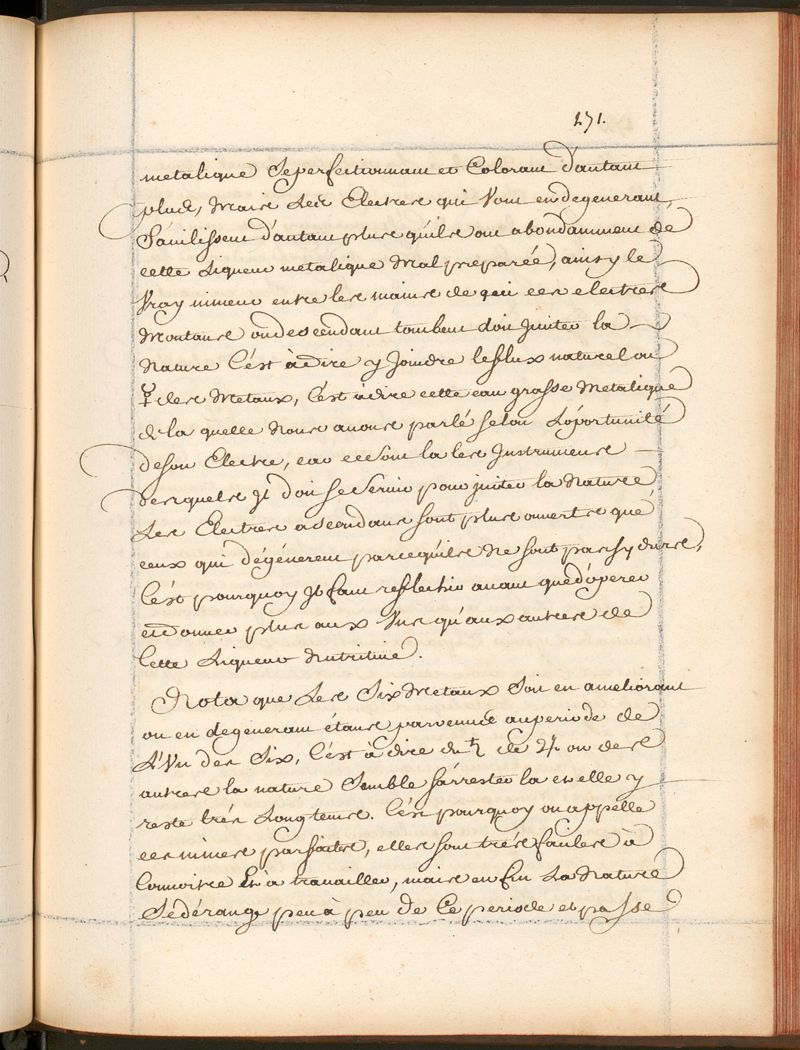 171.
metalique Se perfectionnant et Colorant d'autant
plus, Mais Les Electres qui Vont en degenerant
S'avilissent d'autant plus qu'ils ont abondamment de
cette Liqueur metalique Mal preparée, ainsy le
Vray mineur entre les mains de qui ces electres
Montans ou descendant tombent doit jmiter la
Nature C'est à dire y Joindre les flux naturel ou
☿ des Metaux, C'est à dire cette eau grasse Metalique
de la quelle Nous avons parlé selon L'oportunité
de son Electre, car ce sont la les Jnstrumens
desquels Jl doit se servir pour jmiter la Nature
Les Electres ascendans sont plus ouverts que
ceux qui dégénerent parcequ'ils Ne sont pas sy durs,
C'est pourquoy Jl faut reflechir avant que d'operer
et donner plus aux Uns qu'aux autres de
Cette Liqueur Nutritive.
Nota que Les Six Metaux Soit en ameliorant
ou en degenerant étans parvenus au periode de
L'Un des Six, C'est à dire du ♄ de ♃ ou des
autres la nature Semble s'arrester la et elle y
reste trés Longtems. C'est pourquoy on appelle
ces mines parfaites, elles sont trés faciles à
Connoitre Et à travailler, mais en fin La Nature
Se dérange peu à peu de Ce periode et passe